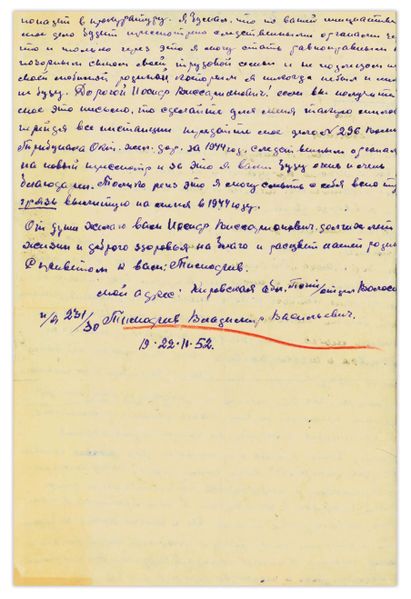 попадёт в прокуратуру. Я думал, что по вашей инициативе
мое дело будет пересмотрено следственными органами
что и только через это я могу стать равноправным и
сыном своей трудовой семьи и не подлецом
своей любимой родины, которым я никогда небыл и
не буду. Дорогой Иосиф Виссарионович! если вы получите
мое это письмо, то сделайте для меня такую милость
все инстанции передайте мое дело № 296
Трибунала Окт. жел. дор. за 1944 год. следственным органам
на новый пересмотр и за это я вам буду очень и очень
благодарен. Только через это я могу смыть с себя всю ту
грязь вылитую на меня в 1944 году.
От души желаю вам Иосиф Виссарионович. долгих лет
жизни и доброго здоровья на благо и расцвет нашей родины
С приветом к вам:
мой адрес: Кировская обл.
п/я 231/30 Владимир Васильевич.
19-22-11-52.